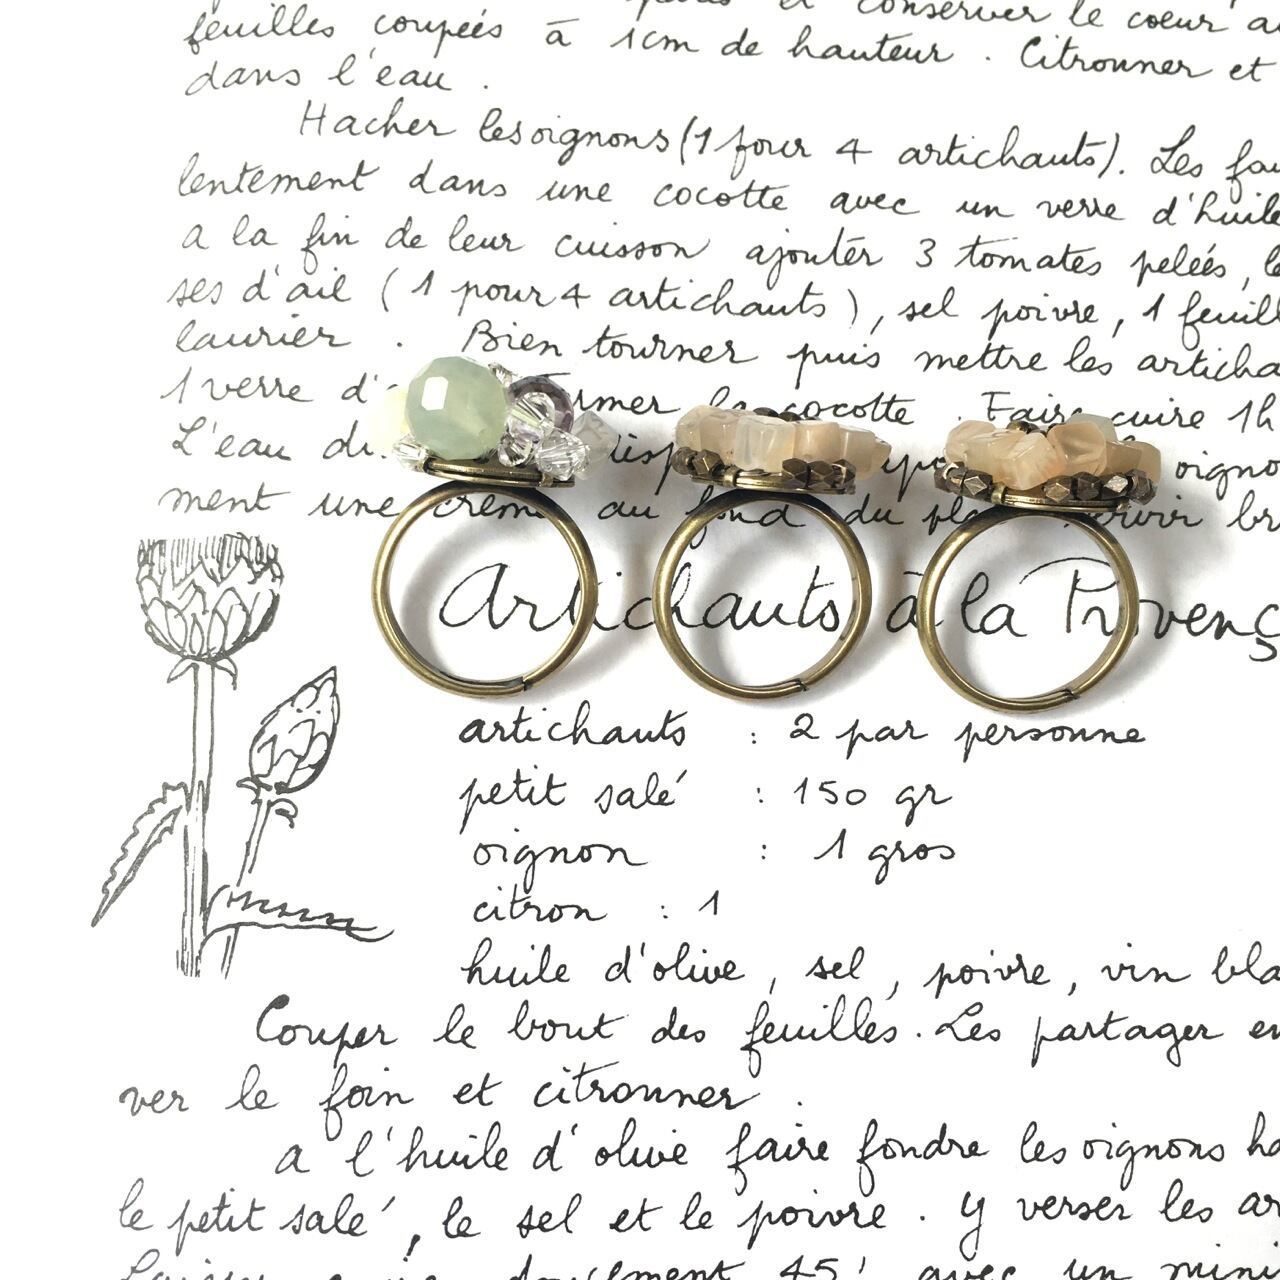 et conserver le coeur
feuilles coupées à 1cm de hauteur . Citronner et
dans l'eau .
Hacher les oignons (1 pour 4 artichauts). Les
lentement dans une cocotte avec un verre d'huile
a la fin de leur cuisson ajouter 3 tomates pelées,
ses d'ail ( 1 pour 4 artichauts ), sel poivre, 1
laurier . Bien tourner puis mettre les
1 verre la cocotte . Faire cuire 1h
L'eau
ment une crème au fond du
Artichauts à la
artichauts : 2 par personne
petit salé : 150 gr
oignon : 1 gros
citron : 1
huile d'olive, sel, poivre, vin
Couper le bout des feuilles. Les partager
ver le foin et citronner .
a l'huile d'olive faire fondre les oignons
le petit salé, le sel et le poivre . y verser les
45' avec un